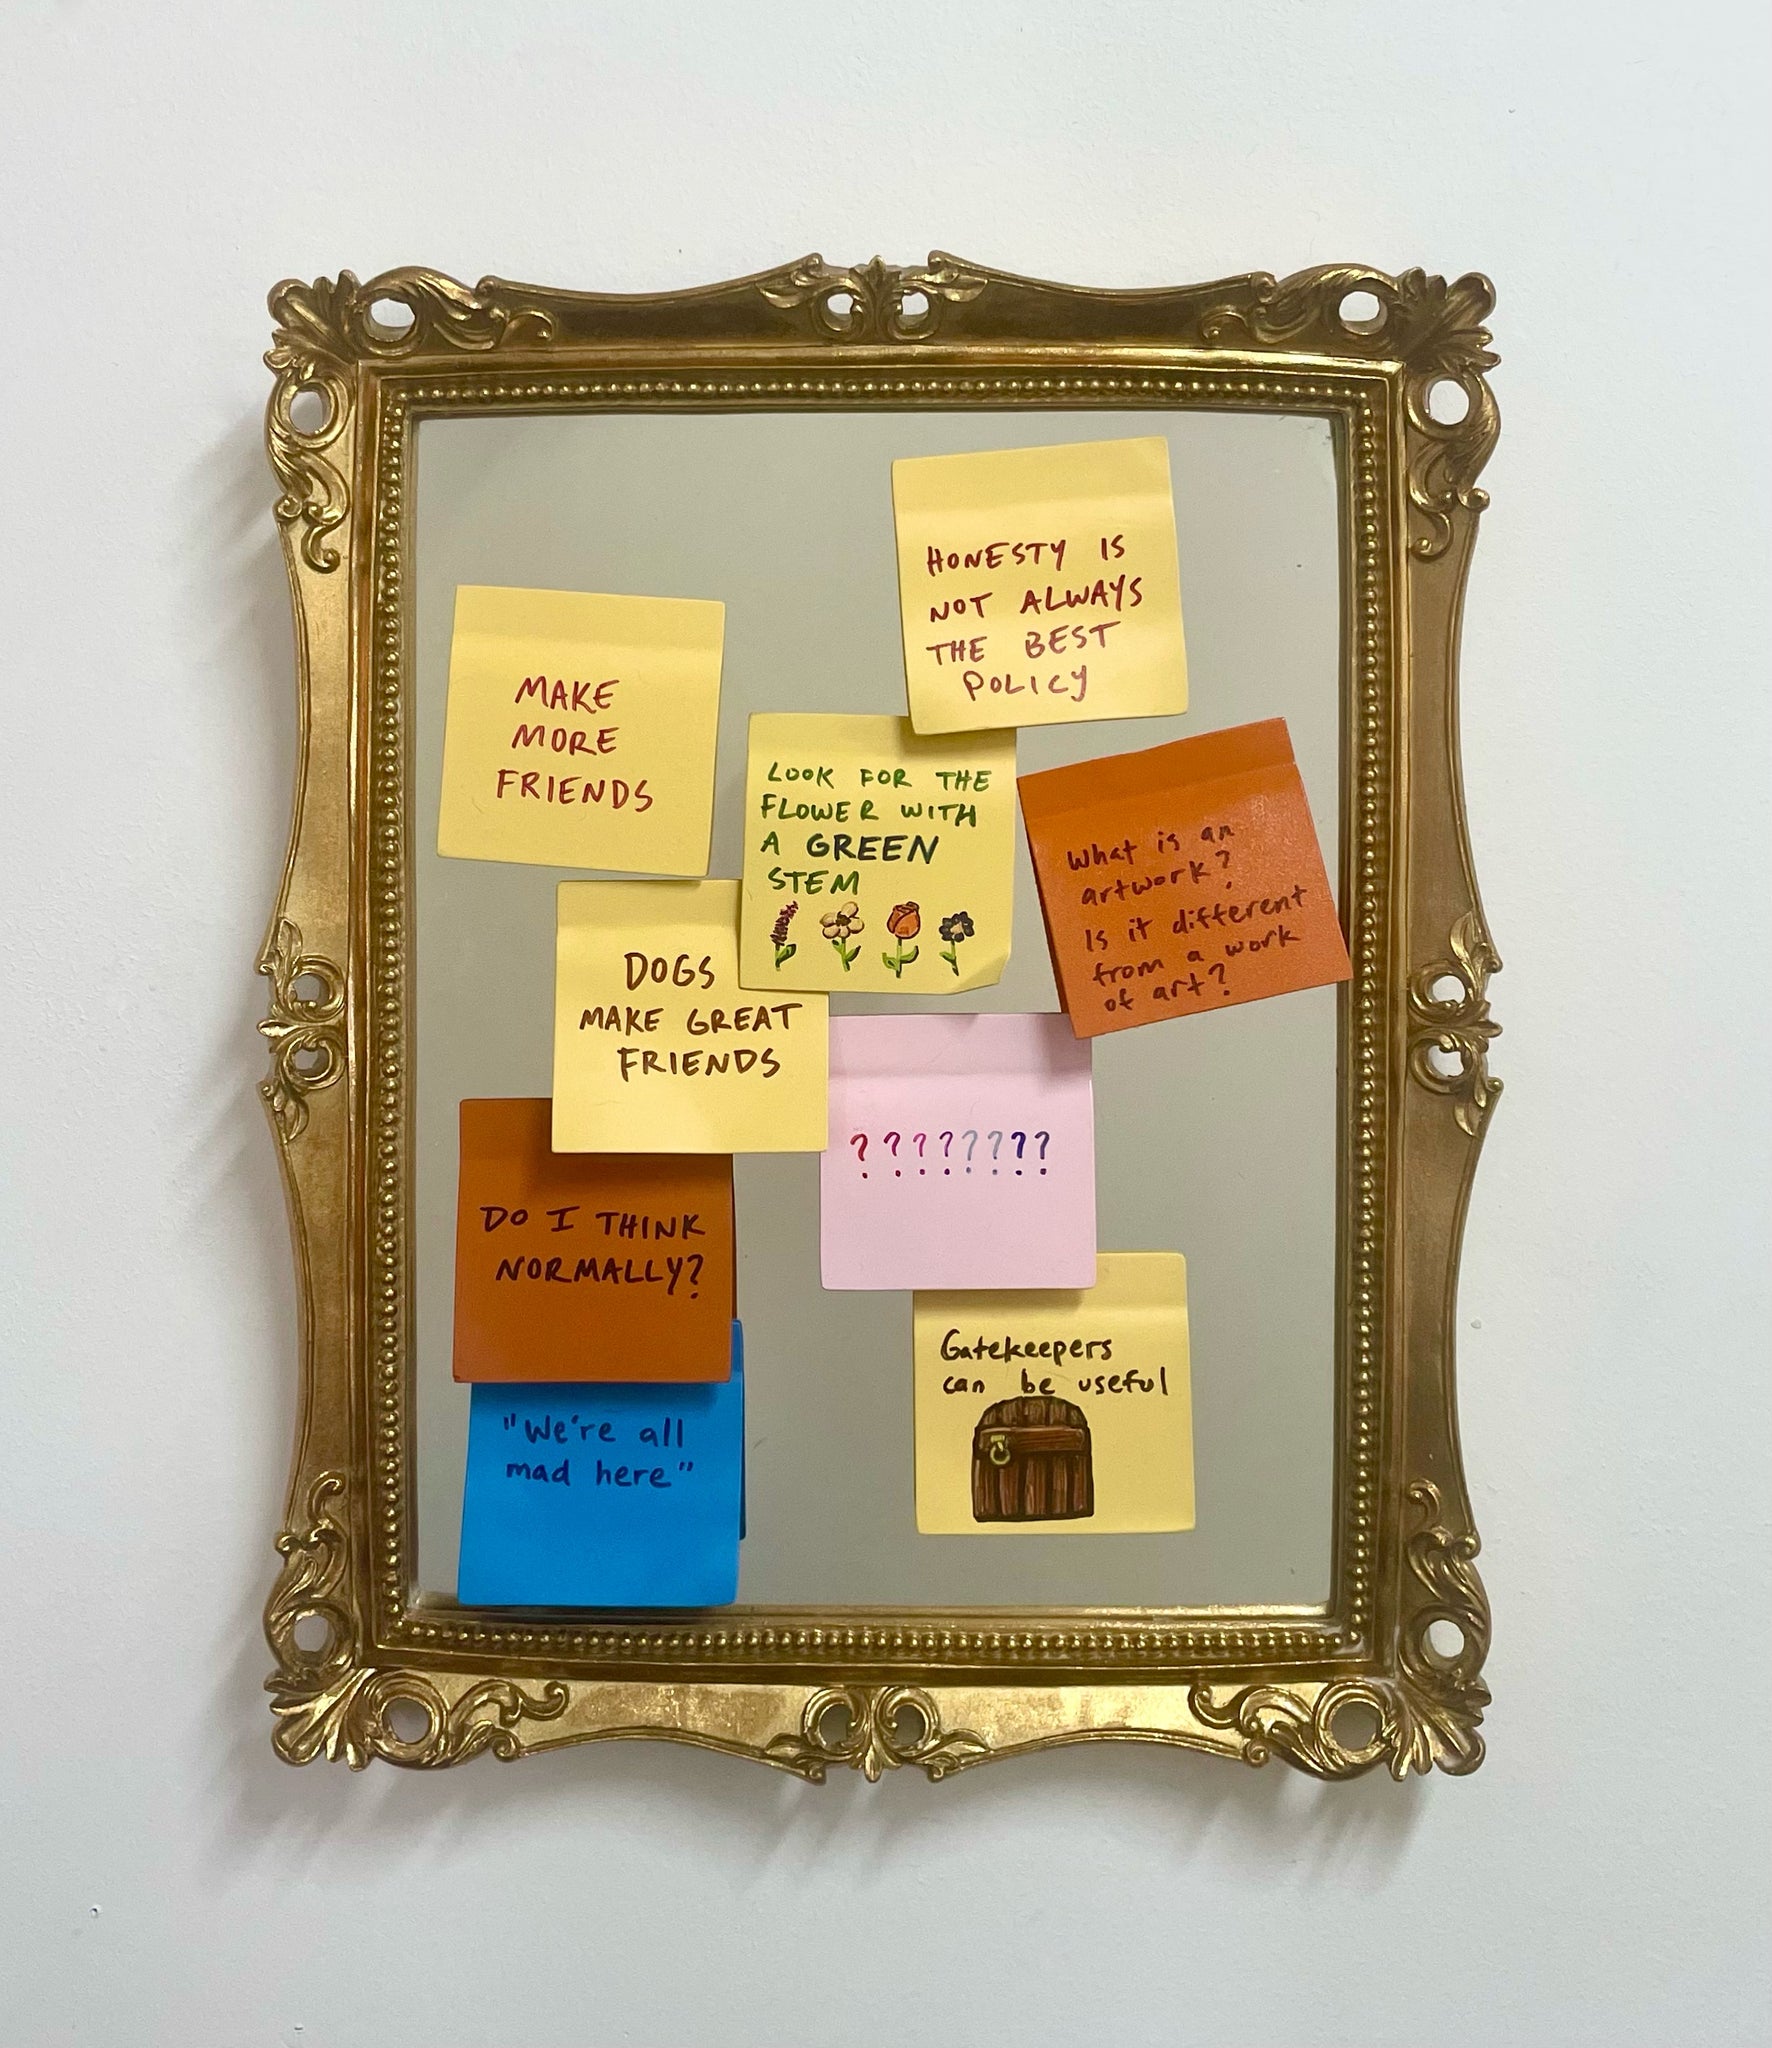 HONESTY IS
NOT ALWAYS
THE BEST
POLICY
MAKE
MORE
FRIENDS
LOOK FOR THE
FLOWER WITH
A GREEN
STEM
What is an
artwork?
Is it different
from a work
of art?
DOGS
MAKE GREAT
FRIENDS
????????
DO I THINK
NORMALLY?
Gatekeepers
can be useful
"We're all
mad here"